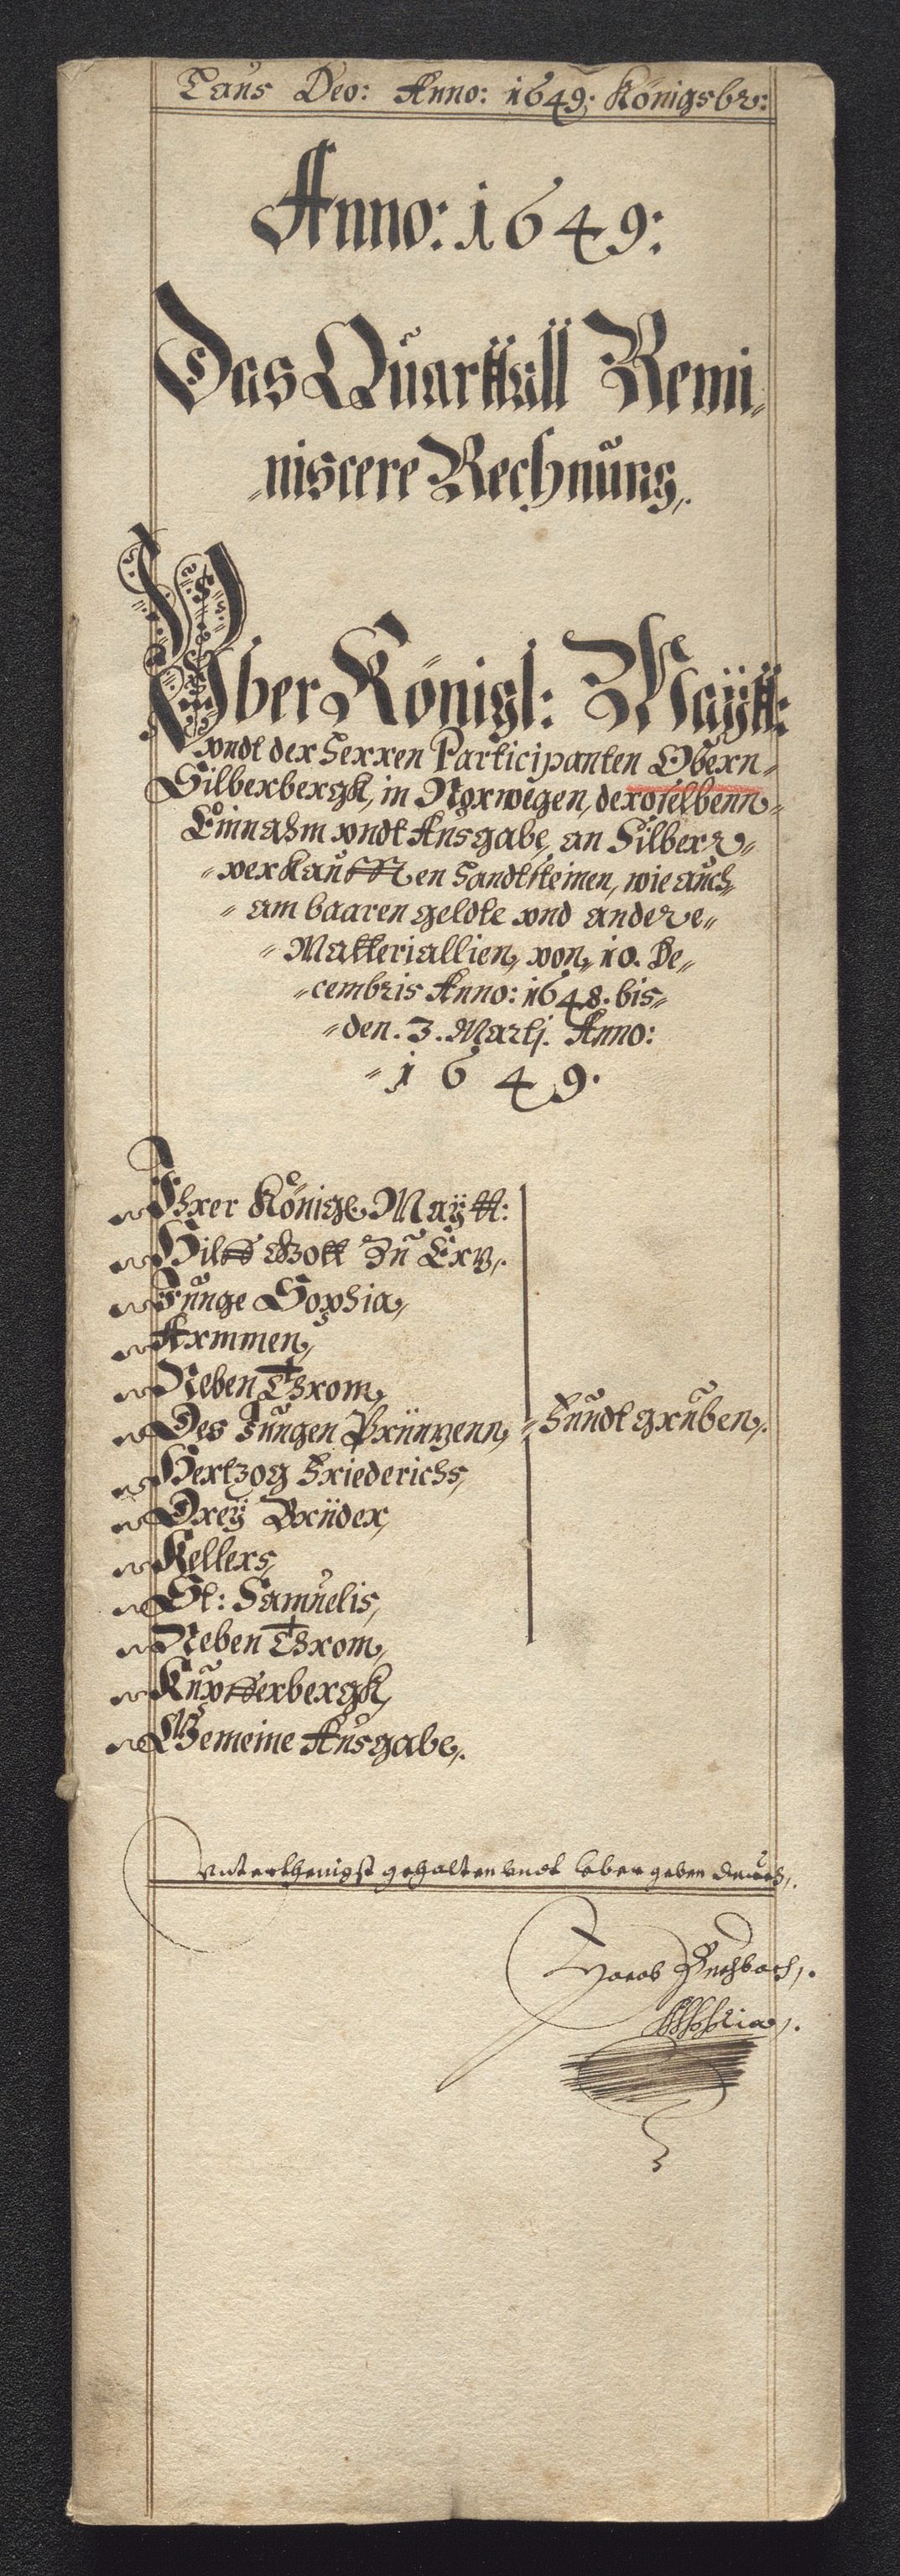 Laus Deo: Anno: 1649: Königsbr:
Anno: 1649:
Das Quarttall Remi„
„niscere Rechnung,.
Vber Königl: Maÿtt:
vndt der Herren Participanten Obern„
Silberbergk, in Norwegen, deroselbenn„
Einnahm vndt Ausgabe, an Silberr„
„verkaufften Handtsteinen, wie auch„
„am baaren geldte vnd andere„
„Matteriallien, von, 10. De„
„cembris Anno: 1648. bis„
„den. 3. Martj. Anno:
„1649.
Ihrer Königl. Maÿtt:
Hilff Gott Zu Erv,.
Junge Sophia,
Armmen,
Neben Throm,
Des Jungen Printzenn, „Fundtgruben,.
Hertzog Friederichs,
Dreÿ Brüder,
Kellers,
St: Samuelis,
Neben Throm,
Kupfferbergk,
Gemeine Ausgabe,.
Vnterthenigst gehalten vndt vbergeben durch,.
Jacob